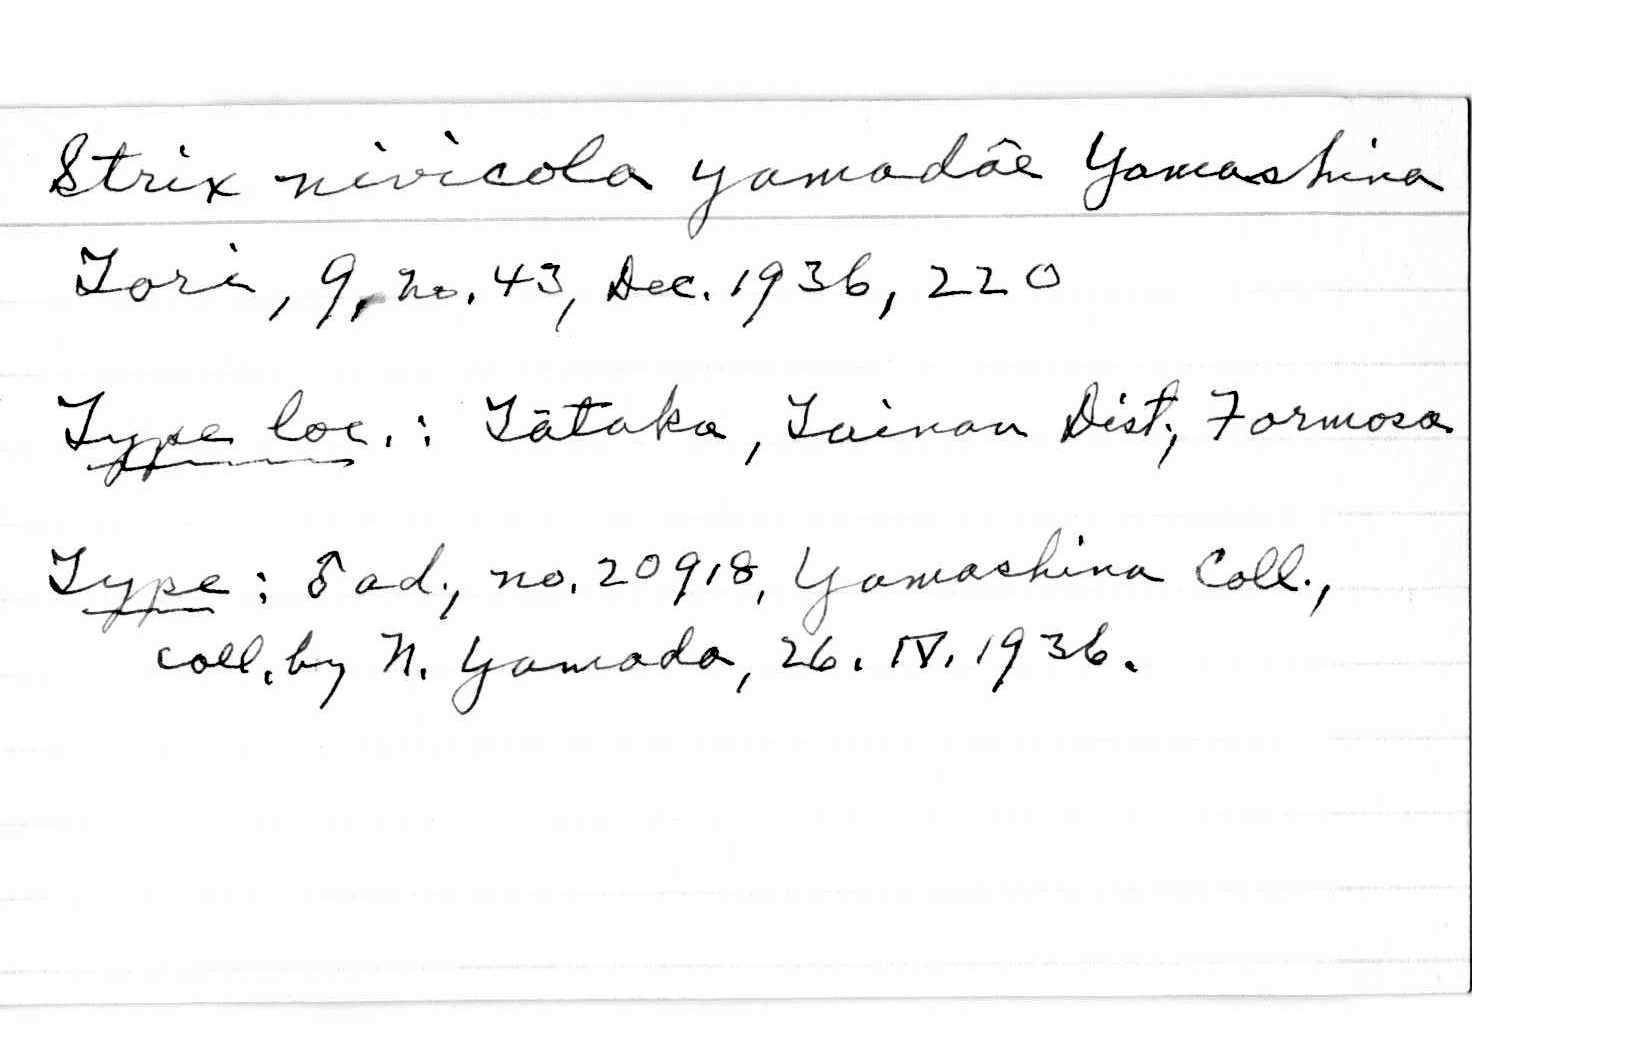 Strix nivicola yamadâe Yamashina
Tori, 9, no. 43, Dec. 1936, 220
Type loc.: Tātaka, Tainan Dist., Formosa
Type: ♂ ad., no. 20918, Yamashina Coll.,
coll. by N. Yamada, 26. IV. 1936.